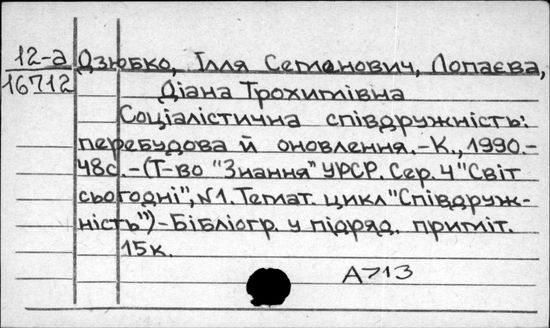 12-а
16712
Дзюбко, Ілля Семенович, Лопаєва,
Діана Трохимівна
Соціалістична співдружність:
перебудова й оновлення.-К., 1990.-
48с.-(Т-во "Знання" УРСР. Сер. 4 "Світ
сьогодні", №1. Темат. цикл "Співдруж-
ність")-Бібліогр. у підряд. приміт.
15к.
А713